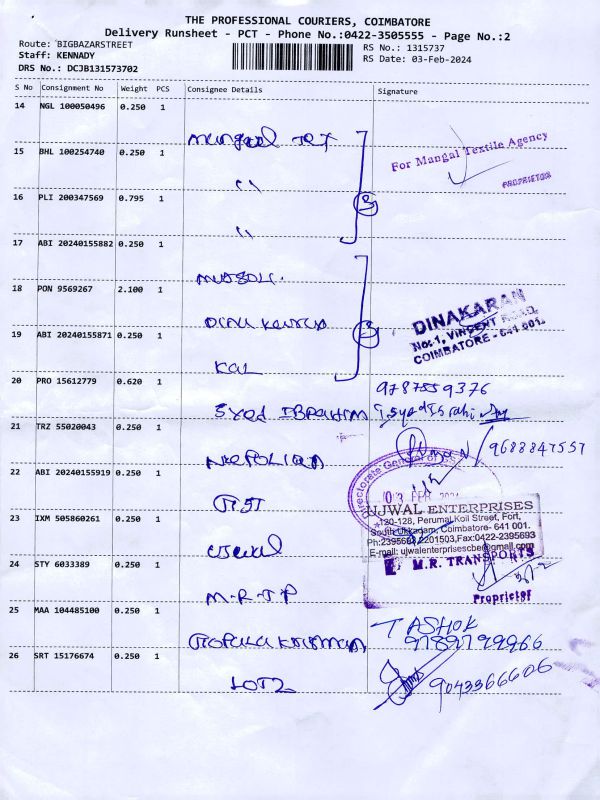 THE PROFESSIONAL COURIERS, COIMBATORE
Delivery Runsheet - PCT - Phone No.:0422-3505555 - Page No.:2
Route: BIGBAZARSTREET
RS No.: 1315737
Staff: KENNADY
RS Date: 03-Feb-2024
DRS No.: DCJB131573702
S No Consignment No Weight PCS Consignee Details Signature
14 NGL 100050496 0.250 1
Mangal Tex
For Mangal Textile Agency
PROPRIETOR
15 BHL 100254740 0.250 1
"
16 PLI 200347569 0.795 1
3
"
17 ABI 20240155882 0.250 1
18 PON 9569267 2.100 1
DINAKARAN
No:1, VINCENT ROAD,
COIMBATORE - 641 001.
19 ABI 20240155871 0.250 1
3
Kal
20 PRO 15612779 0.620 1
9787559376
Syed IBRAHIM
21 TRZ 55020043 0.250 1
9688847557
Directorate General of
22 ABI 20240155919 0.250 1
03 FEB 2024
UJWAL ENTERPRISES
120-128, Perumal Koil Street, Fort,
South Ukkadam, Coimbatore- 641 001.
Ph:2395693,2201503,Fax:0422-2395693
E-mail: ujwalenterprisescbe@gmail.com
23 IXM 505860261 0.250 1
Ujwal
M.R. TRANSPORTS
Proprietor
24 STY 6033389 0.250 1
M-R-T P
25 MAA 104485100 0.250 1
T ASHOK
9789799966
26 SRT 15176674 0.250 1
9043366606